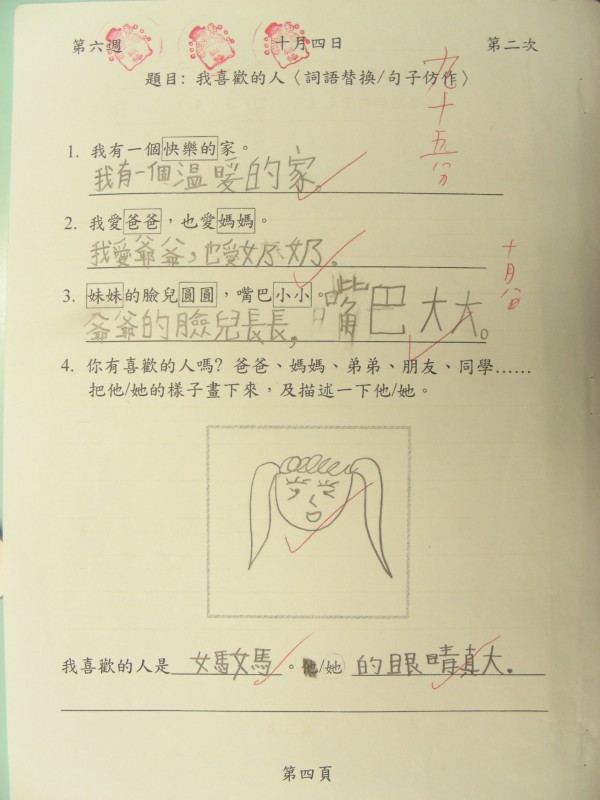 第六週 十月四日 第二次
題目：我喜歡的人〈詞語替換/句子仿作〉
九十五分
1. 我有一個快樂的家。
我有一個溫暖的家。
2. 我愛爸爸，也愛媽媽。
我愛爺爺，也愛奶奶。
3. 妹妹的臉兒圓圓，嘴巴小小。
爺爺的臉兒長長，嘴巴大大。
4. 你有喜歡的人嗎？爸爸、媽媽、弟弟、朋友、同學……
把他/她的樣子畫下來，及描述一下他/她。
我喜歡的人是 媽媽 。他/她 的眼睛真大.
第四頁